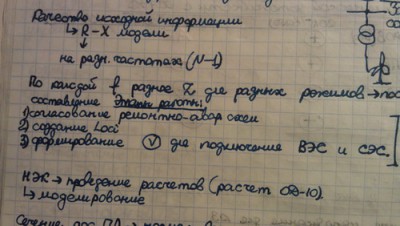 Качество исходной информации
↳ R-X модели
↓
на разн. частотах (N-1)
По каждой f разное Z для разных режимов → пос
составление Этапы работы:
1) согласование ремонтно-авар схем
2) создание Loci
3) формирование V для подключение ВЭС и СЭС.
НЭК → проведение расчетов (расчет ОД-10).
↳ моделирование